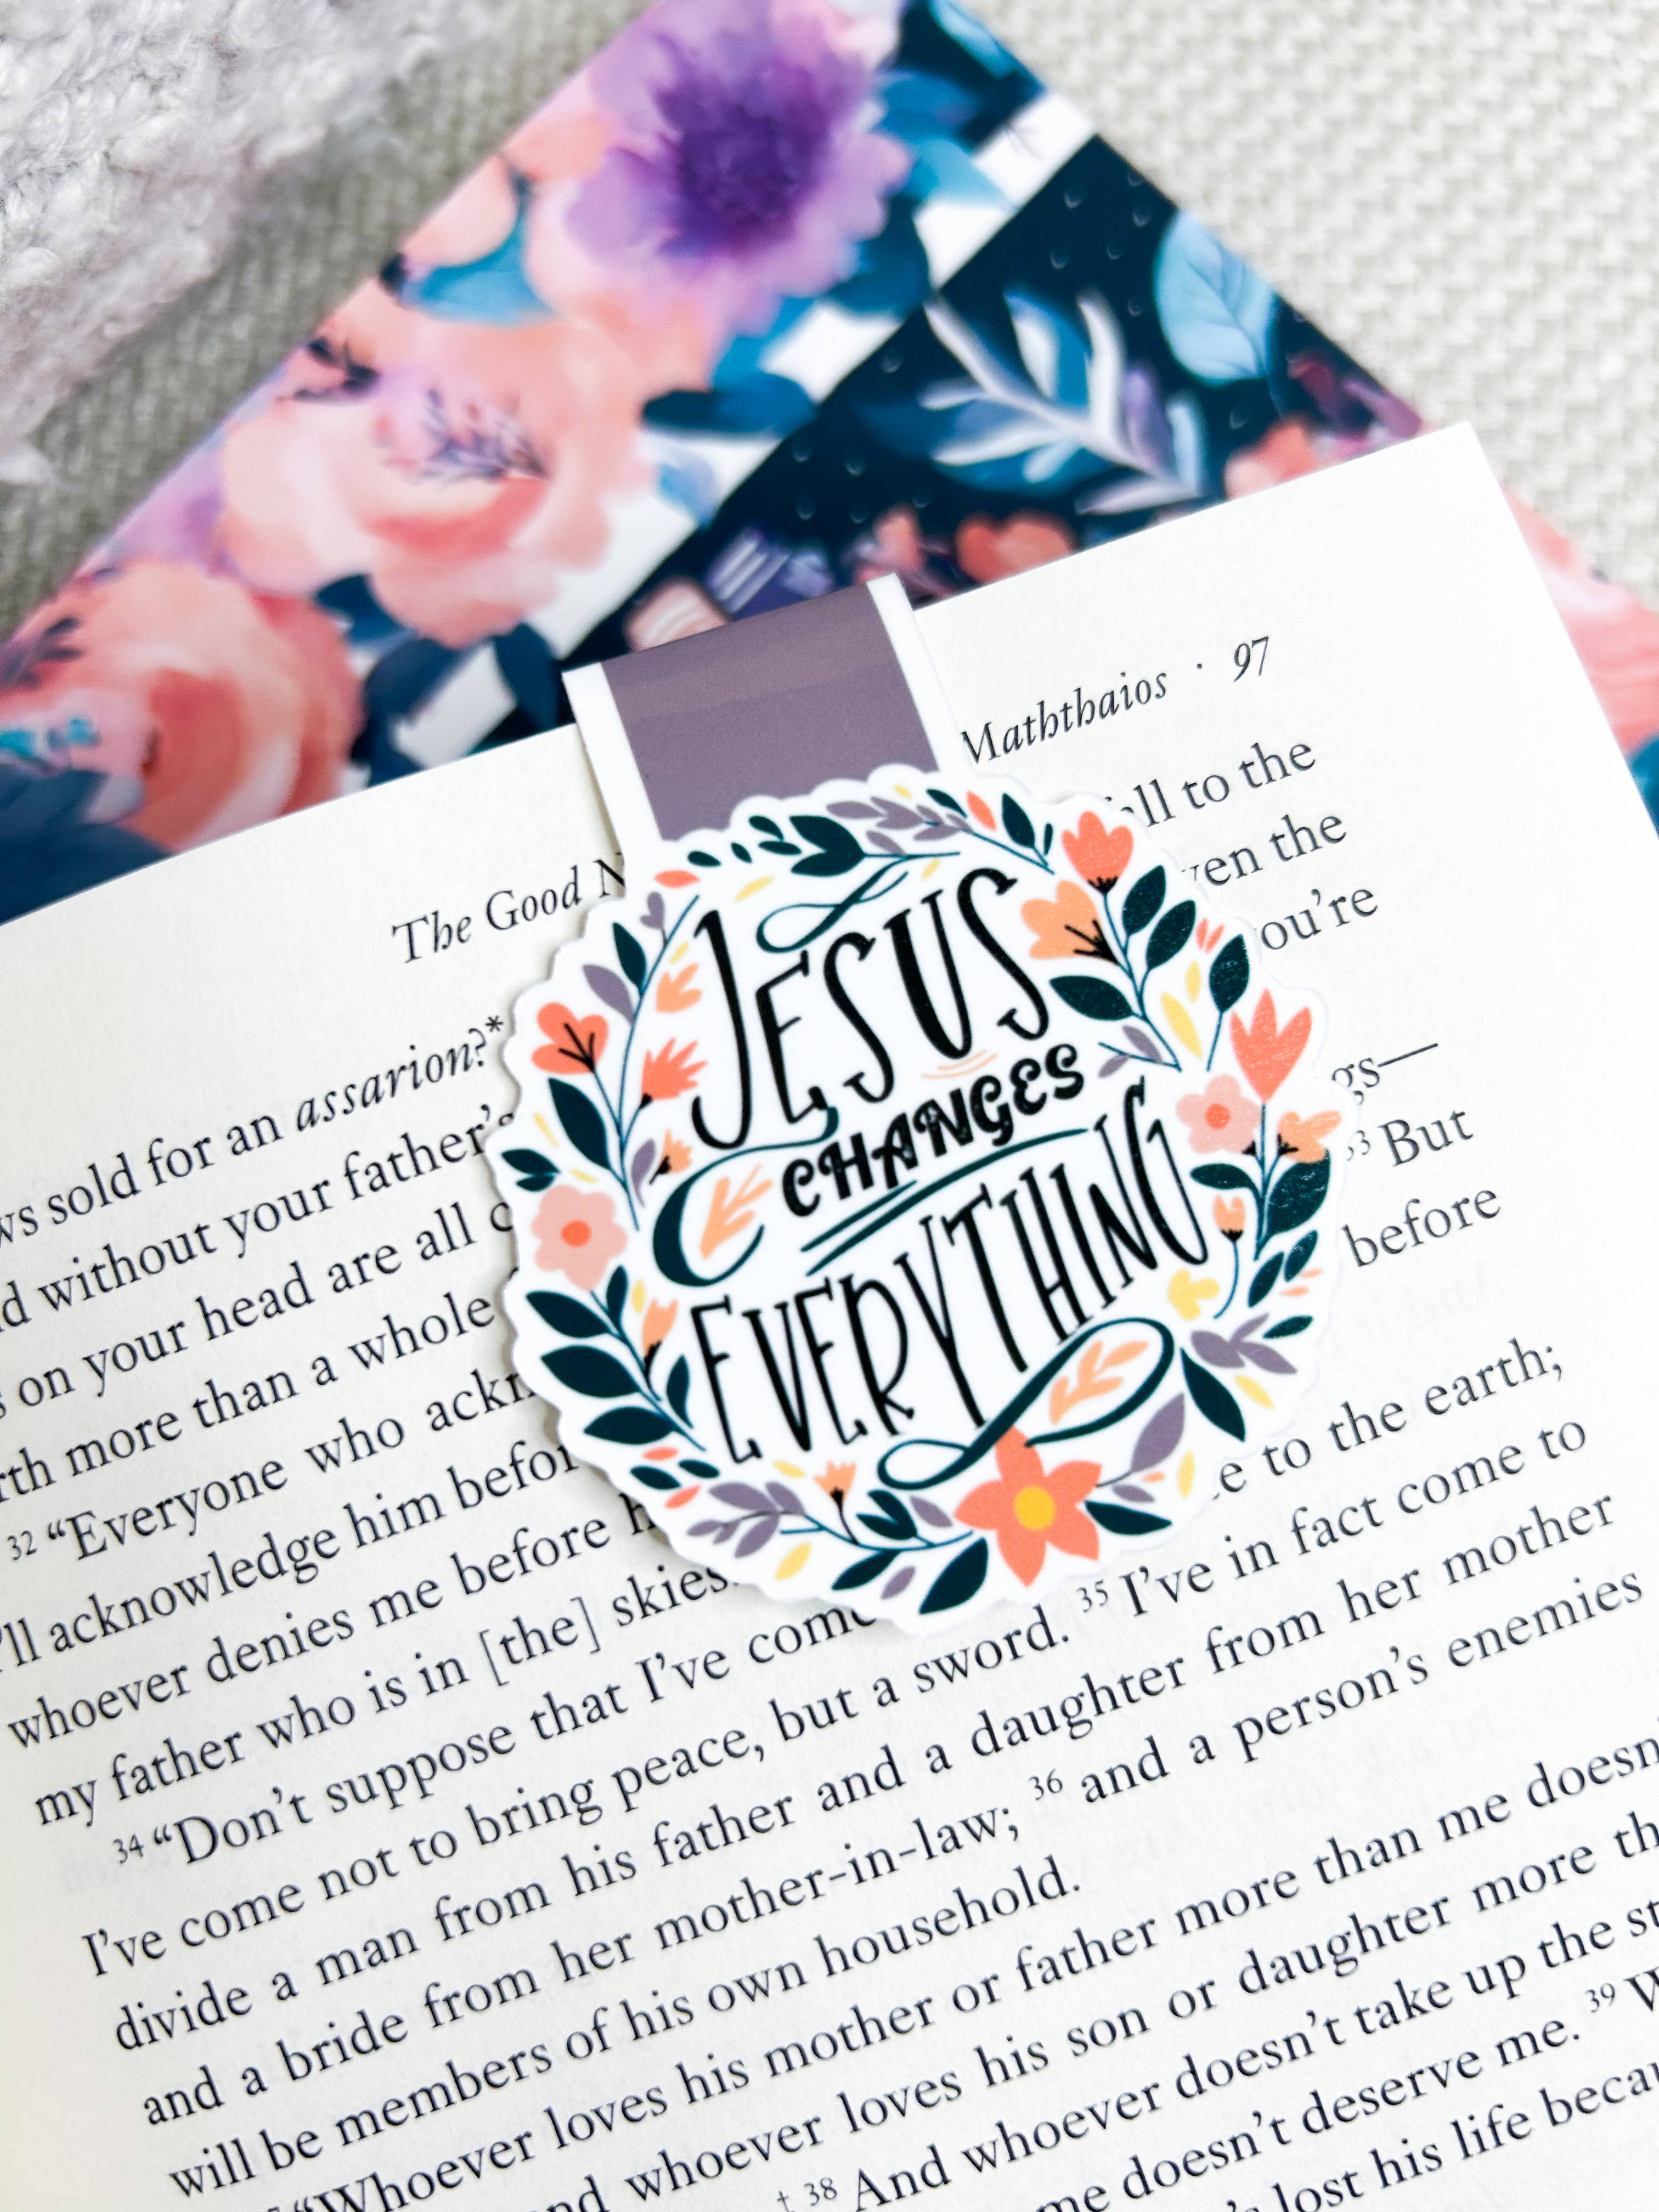 The Good
Maththaios · 97
sold for an assarion?* to the
without your father's the
on your head are all you're
more than a whole
32 "Everyone who But
acknowledge him before
whoever denies me before
my father who is in [the] skies. to the earth;
34 "Don't suppose that I've come
I've come not to bring peace, but a sword. 35 I've in fact come to
divide a man from his father and a daughter from her mother
and a bride from her mother-in-law; 36 and a person's enemies
will be members of his own household.
"Whoever loves his mother or father more than me
whoever loves his son or daughter more
38 And whoever doesn't take up the
me doesn't deserve me. 39
lost his life
JESUS
CHANGES
EVERYTHING